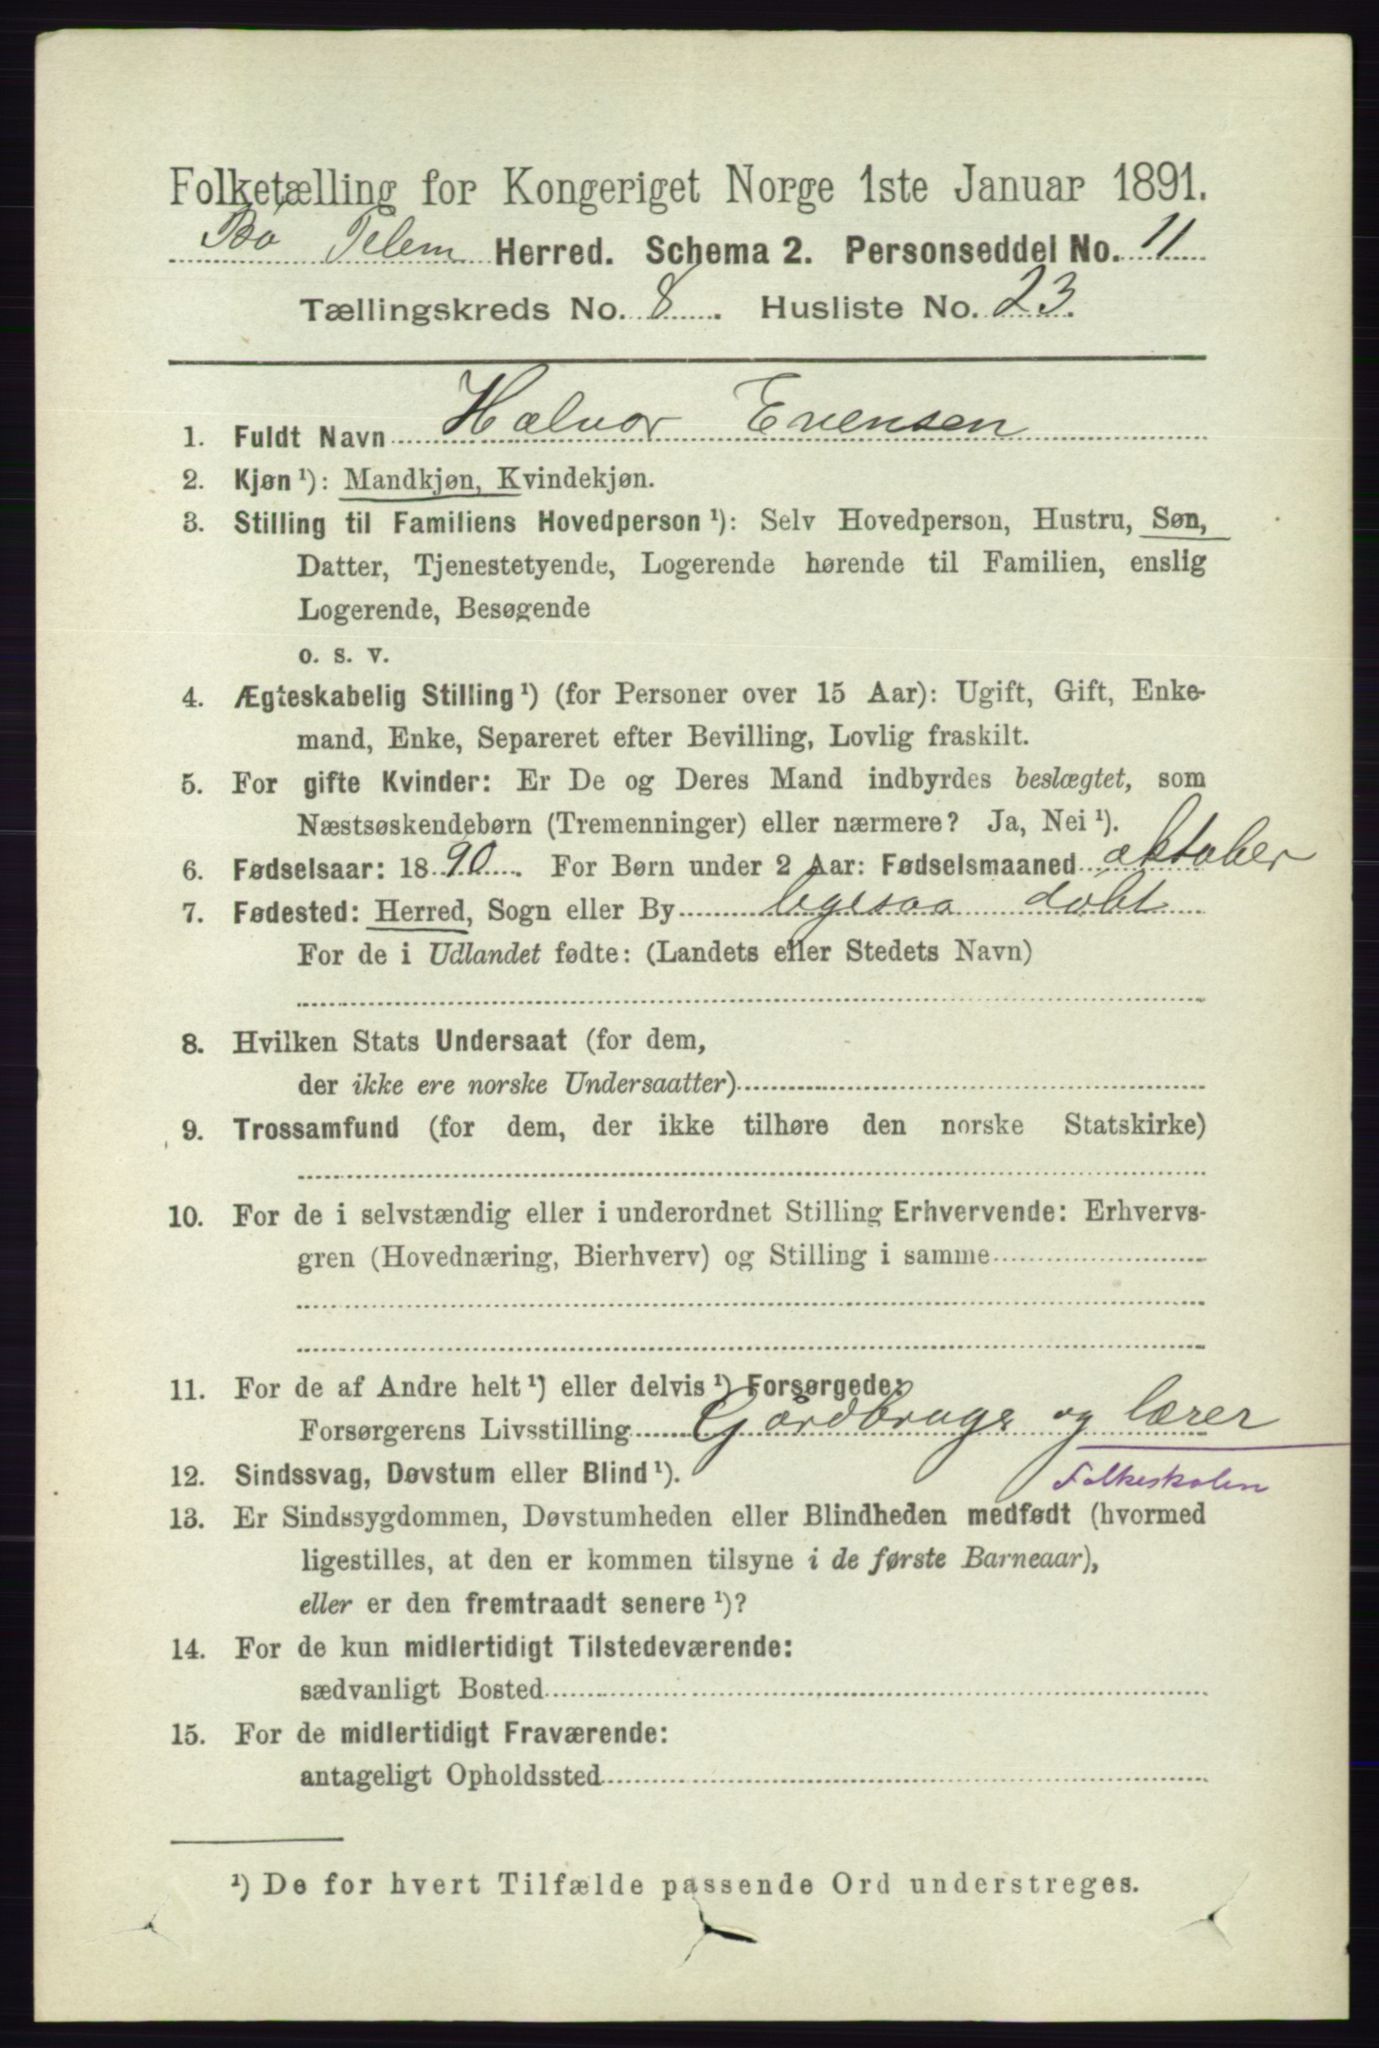 Folketælling for Kongeriget Norge 1ste Januar 1891.
Bø Telem Herred. Schema 2. Personseddel No. 11
Tællingskreds No. 8. Husliste No. 23.
1. Fuldt Navn Halvor Evensen
2. Kjøn¹): Mandkjøn, Kvindekjøn.
3. Stilling til Familiens Hovedperson¹): Selv Hovedperson, Hustru, Søn,
Datter, Tjenestetyende, Logerende hørende til Familien, enslig
Logerende, Besøgende
o. s. v.
4. Ægteskabelig Stilling¹) (for Personer over 15 Aar): Ugift, Gift, Enke-
mand, Enke, Separeret efter Bevilling, Lovlig fraskilt.
5. For gifte Kvinder: Er De og Deres Mand indbyrdes beslægtet, som
Næstsøskendebørn (Tremenninger) eller nærmere? Ja, Nei¹).
6. Fødselsaar: 1890. For Børn under 2 Aar: Fødselsmaaned oktober
7. Fødested: Herred, Sogn eller By ligesaa døbt
For de i Udlandet fødte: (Landets eller Stedets Navn)
8. Hvilken Stats Undersaat (for dem,
der ikke ere norske Undersaatter)
9. Trossamfund (for dem, der ikke tilhøre den norske Statskirke)
10. For de i selvstændig eller i underordnet Stilling Erhvervende: Erhvervs-
gren (Hovednæring, Bierhverv) og Stilling i samme
11. For de af Andre helt¹) eller delvis¹) Forsørgede:
Forsørgerens Livsstilling Gårdbruge og lærer
Folkeskolen
12. Sindssvag, Døvstum eller Blind¹).
13. Er Sindssygdommen, Døvstumheden eller Blindheden medfødt (hvormed
ligestilles, at den er kommen tilsyne i de første Barneaar),
eller er den fremtraadt senere¹)?
14. For de kun midlertidigt Tilstedeværende:
sædvanligt Bosted
15. For de midlertidigt Fraværende:
antageligt Opholdssted
¹) De for hvert Tilfælde passende Ord understreges.